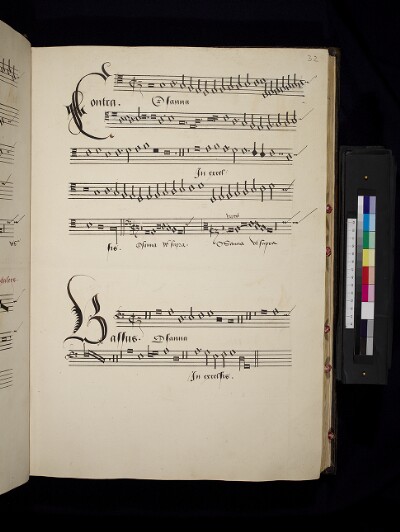 32
Contra. Osanna
In excel
sis. Osanna Ut supra Osanna Ut supra
Bassus. Osanna
In excelsis.